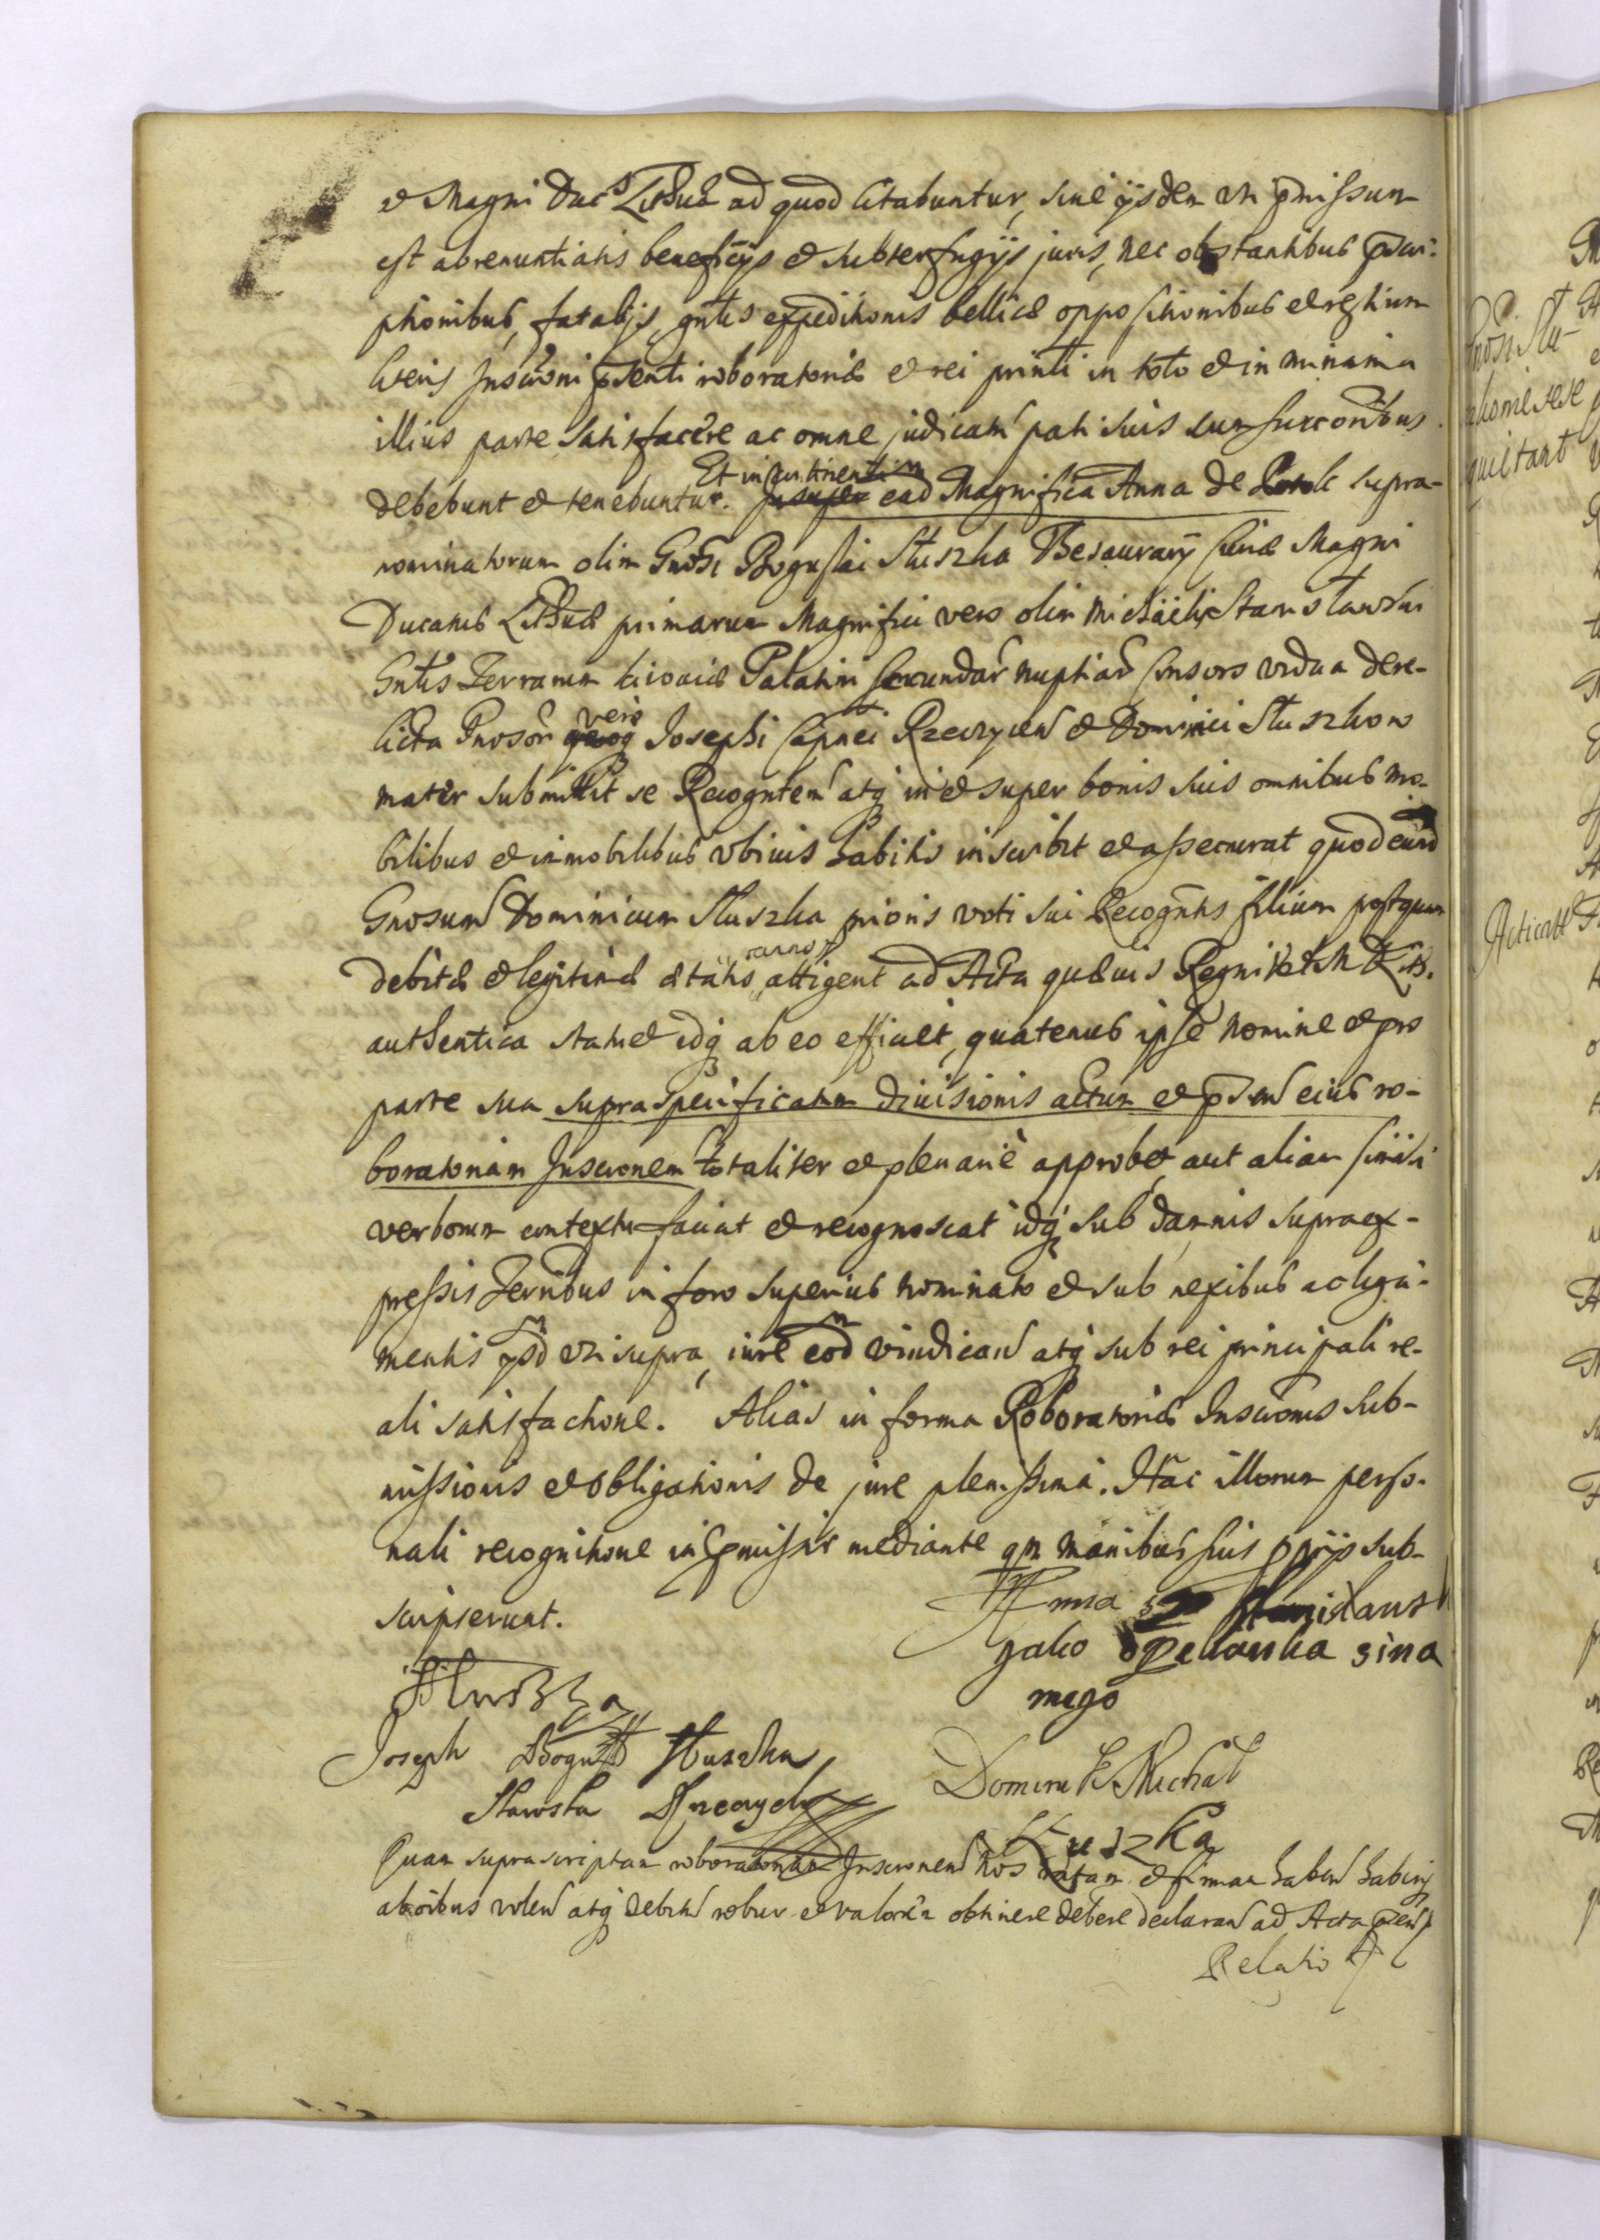 et Magni Duc Lithuae ad quod citabuntur, sine ijsdem uti pmissum
est abrenuntiatis beneficijs et subterfugijs juris, nec obstantibus pscri-
ptionibus, fatalijs, gntis expeditionis bellicae oppositionibus et regtium
literis Inscroni psenti roboratoriae et rei printi in toto et in minima
illius parte satisfacere ac omne judicatu pati suis cum succoribus
debebunt et tenebuntur. Et in continenti
Insuper ead Magnifica Anna de Potok supra-
nominatorum olim Gnosi Boguslai Sluszka Thesaurarij Curiae Magni
Ducatus Lithuae primarum Magnifici vero olim Michaelis Stanislawski
Gntis Terrarum Kioviae Palatini secundar nuptiar consors vidua dere-
licta Gnosor vero Josephi Capnei Rzeczycen et Dominici Sluszkow
mater submittit se Recogntem atq in et super bonis suis omnibus mo-
bilibus et immobilibus ubivis habitis inscribit et assecurat quod eund
Gnosum Dominicum Sluszka prioris voti sui Recogntis filium postquam
debitae et legitimae aetatis annos attigerit ad Acta quaevis Regni vel M D Lith.
authentica statuet idq ab eo efficiet, quatenus ipse nomine et pro
parte sua supraspecificatum divisionis actum et psen eius ro-
boratoriam Inscronem totaliter et plenarie approbet aut aliam simili
verborum contextu faciat et recognoscat idq sub damnis supraex-
pressis Ternibus in foro superius nominato et sub nexibus ac liga-
mentis ijsd uti supra, iure eod vindican atq sub rei principali re-
ali satisfactione. Alias in forma Roboratoriae Inscronis sub-
missionis et obligationis de jure plenissima. Hac illorum perso-
nali recognitione in pmissis mediante qm manibus suis pprijs sub-
scripserunt.
Anna z Stanislaws
yako opekunka sina
mego
Sluszka
Joseph Bogusł Sluszka
Starosta Rzeczycky
Dominik Michał
Słuszka
Quam suprascriptam roboratoriam Inscronem nos ratam et firmam haben haberiq
ab oibus volen atq debitu robur et valorem obtinere debere declaran ad Acta psen
Relatio